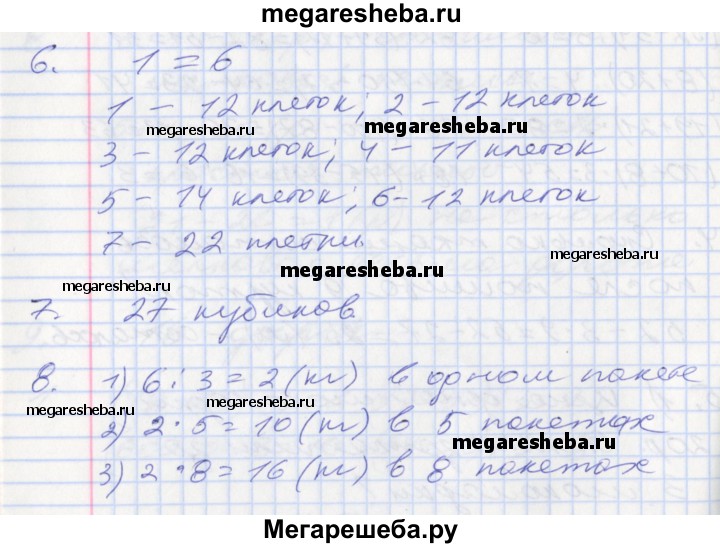 megaresheba.ru
6. 1 = 6
1 - 12 клеток; 2 - 12 клеток
megaresheba.ru megaresheba.ru
3 - 12 клеток; 4 - 11 клеток
5 - 14 клеток; 6 - 12 клеток
7 - 22 клетки.
megaresheba.ru
megaresheba.ru megaresheba.ru
7. 27 кубиков
8. 1) 6 : 3 = 2 (кг) в одном пакете
megaresheba.ru megaresheba.ru
2) 2 · 5 = 10 (кг) в 5 пакетах
megaresheba.ru
3) 2 · 8 = 16 (кг) в 8 пакетах
Мегарешеба.ру